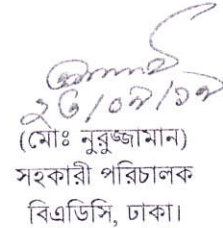 ২৬/০৭/১৭
(মোঃ নুরুজ্জামান)
সহকারী পরিচালক
বিএডিসি, ঢাকা।